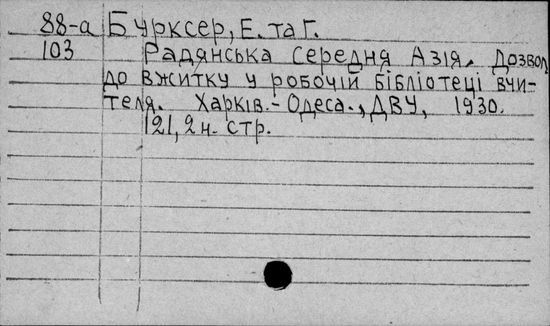 88-а Бурксер, Е. та Г.
103 Радянська Середня Азія. Дозвол.
до вжитку у робочій бібліотеці вчи-
теля. Харків.-Одеса., ДВУ, 1930.
121, 2 н. стр.